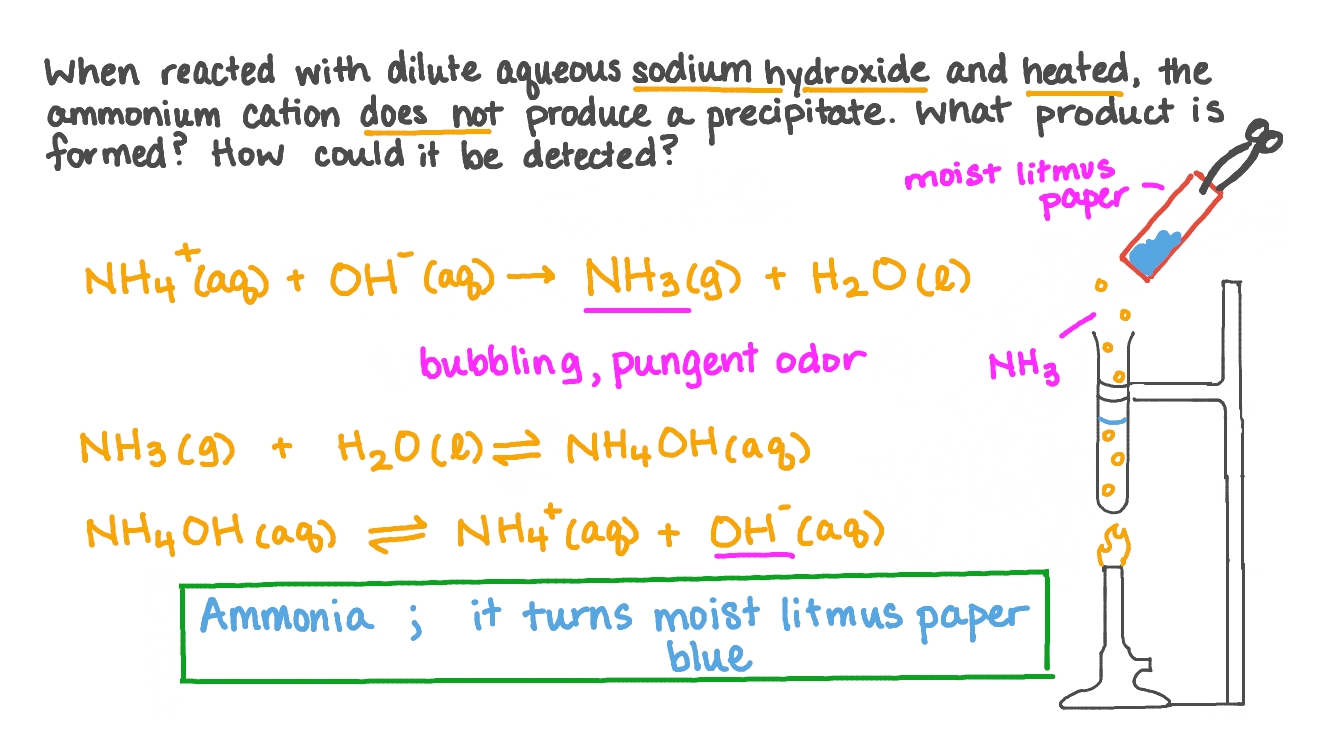 When reacted with dilute aqueous sodium hydroxide and heated, the
ammonium cation does not produce a precipitate. What product is
formed? How could it be detected?
moist litmus
paper
NH₄⁺(aq) + OH⁻(aq) → NH₃(g) + H₂O(l)
bubbling, pungent odor
NH₃
NH₃(g) + H₂O(l) ⇌ NH₄OH(aq)
NH₄OH(aq) ⇌ NH₄⁺(aq) + OH⁻(aq)
Ammonia ; it turns moist litmus paper
blue